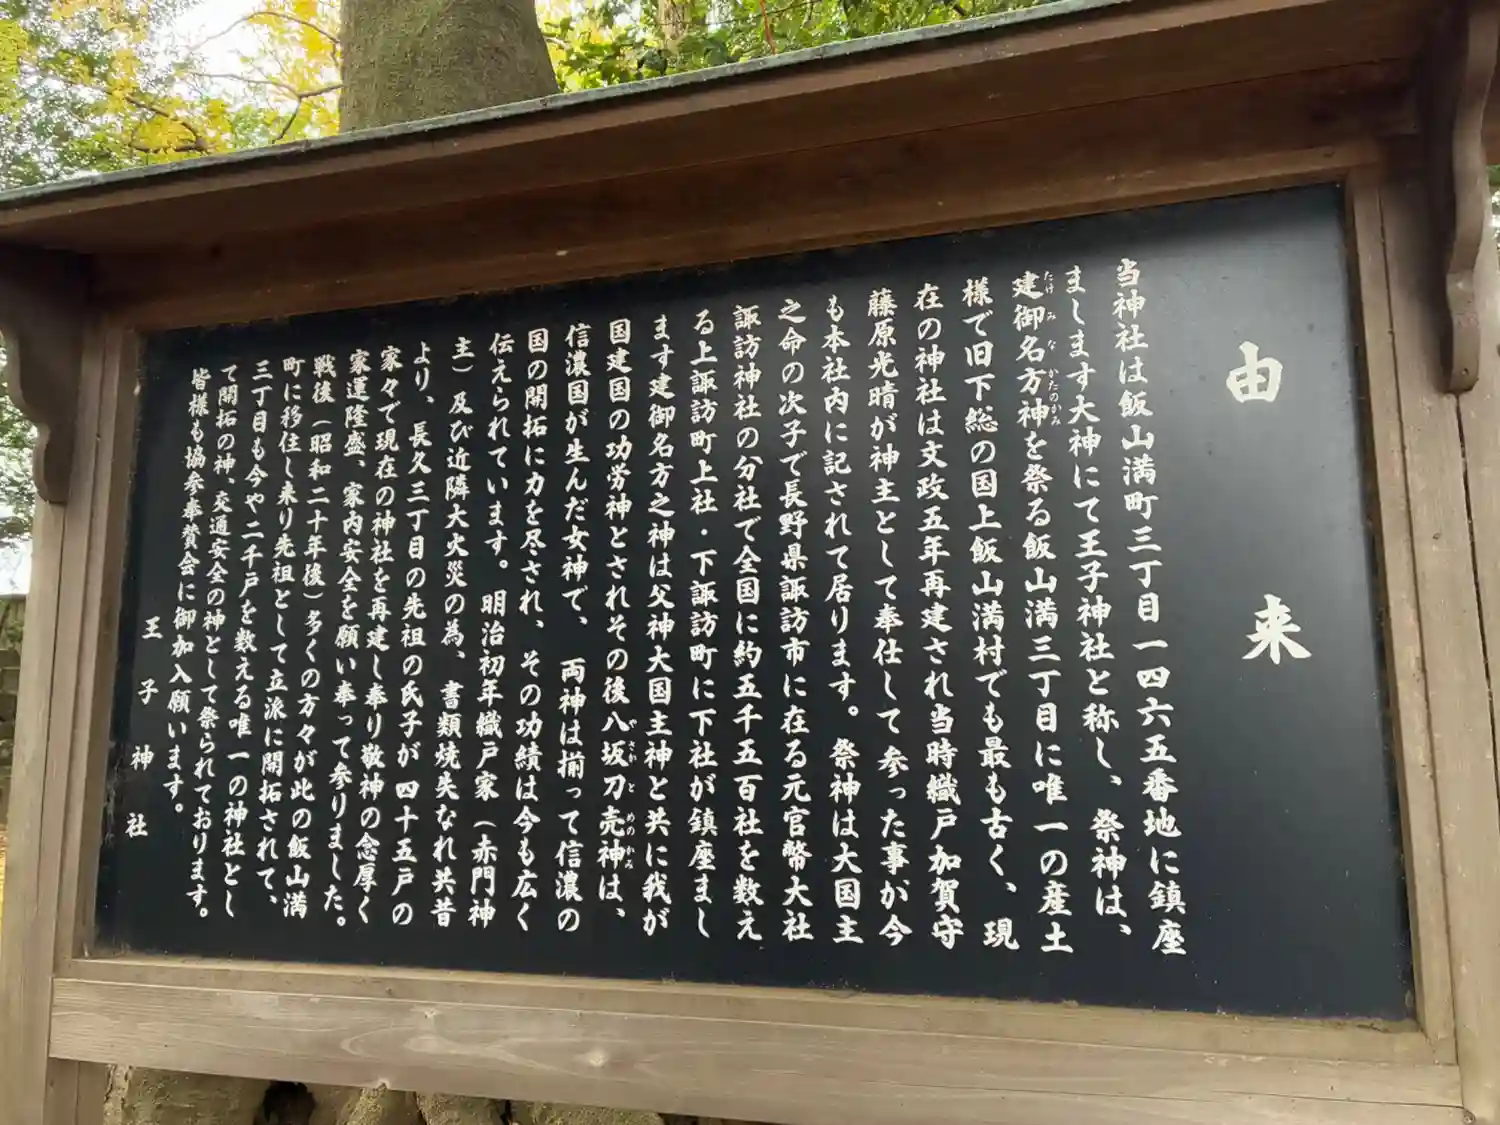 由来
当神社は飯山満町三丁目一四六五番地に鎮座
まします大神にて王子神社と称し、祭神は、
建御名方神を祭る飯山満三丁目に唯一の産土
たけみなかたのかみ
様で旧下総の国上飯山満村でも最も古く、現
在の神社は文政五年再建され当時織戸加賀守
藤原光晴が神主として奉仕して参った事が今
も本社内に記されて居ります。祭神は大国主
之命の次子で長野県諏訪市に在る元官幣大社
諏訪神社の分社で全国に約五千五百社を数え
る上諏訪町上社・下諏訪町に下社が鎮座まし
ます建御名方之神は父神大国主神と共に我が
国建国の功労神とされその後八坂刀売神は、
がさかとめのかみ
信濃国が生んだ女神で、両神は揃って信濃の
国の開拓に力を尽され、その功績は今も広く
伝えられています。明治初年織戸家（赤門神
主）及び近隣大火災の為、書類焼失なれ共昔
より、長久三丁目の先祖の氏子が四十五戸の
家々で現在の神社を再建し奉り敬神の念厚く
家運隆盛、家内安全を願い奉って参りました。
戦後（昭和二十年後）多くの方々が此の飯山満
町に移住し来り先祖として立派に開拓されて、
三丁目も今や二千戸を数える唯一の神社とし
て開拓の神、交通安全の神として祭られております。
皆様も協参奉賛会に御加入願います。
王子神社